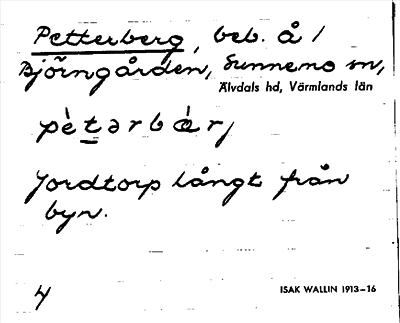 Petterberg, beb. å /
Björngården, Sunnemo sn,
Älvdals hd, Värmlands län
pètərbær/
Jordtorp långt från
byn.
4
ISAK WALLIN 1913–16